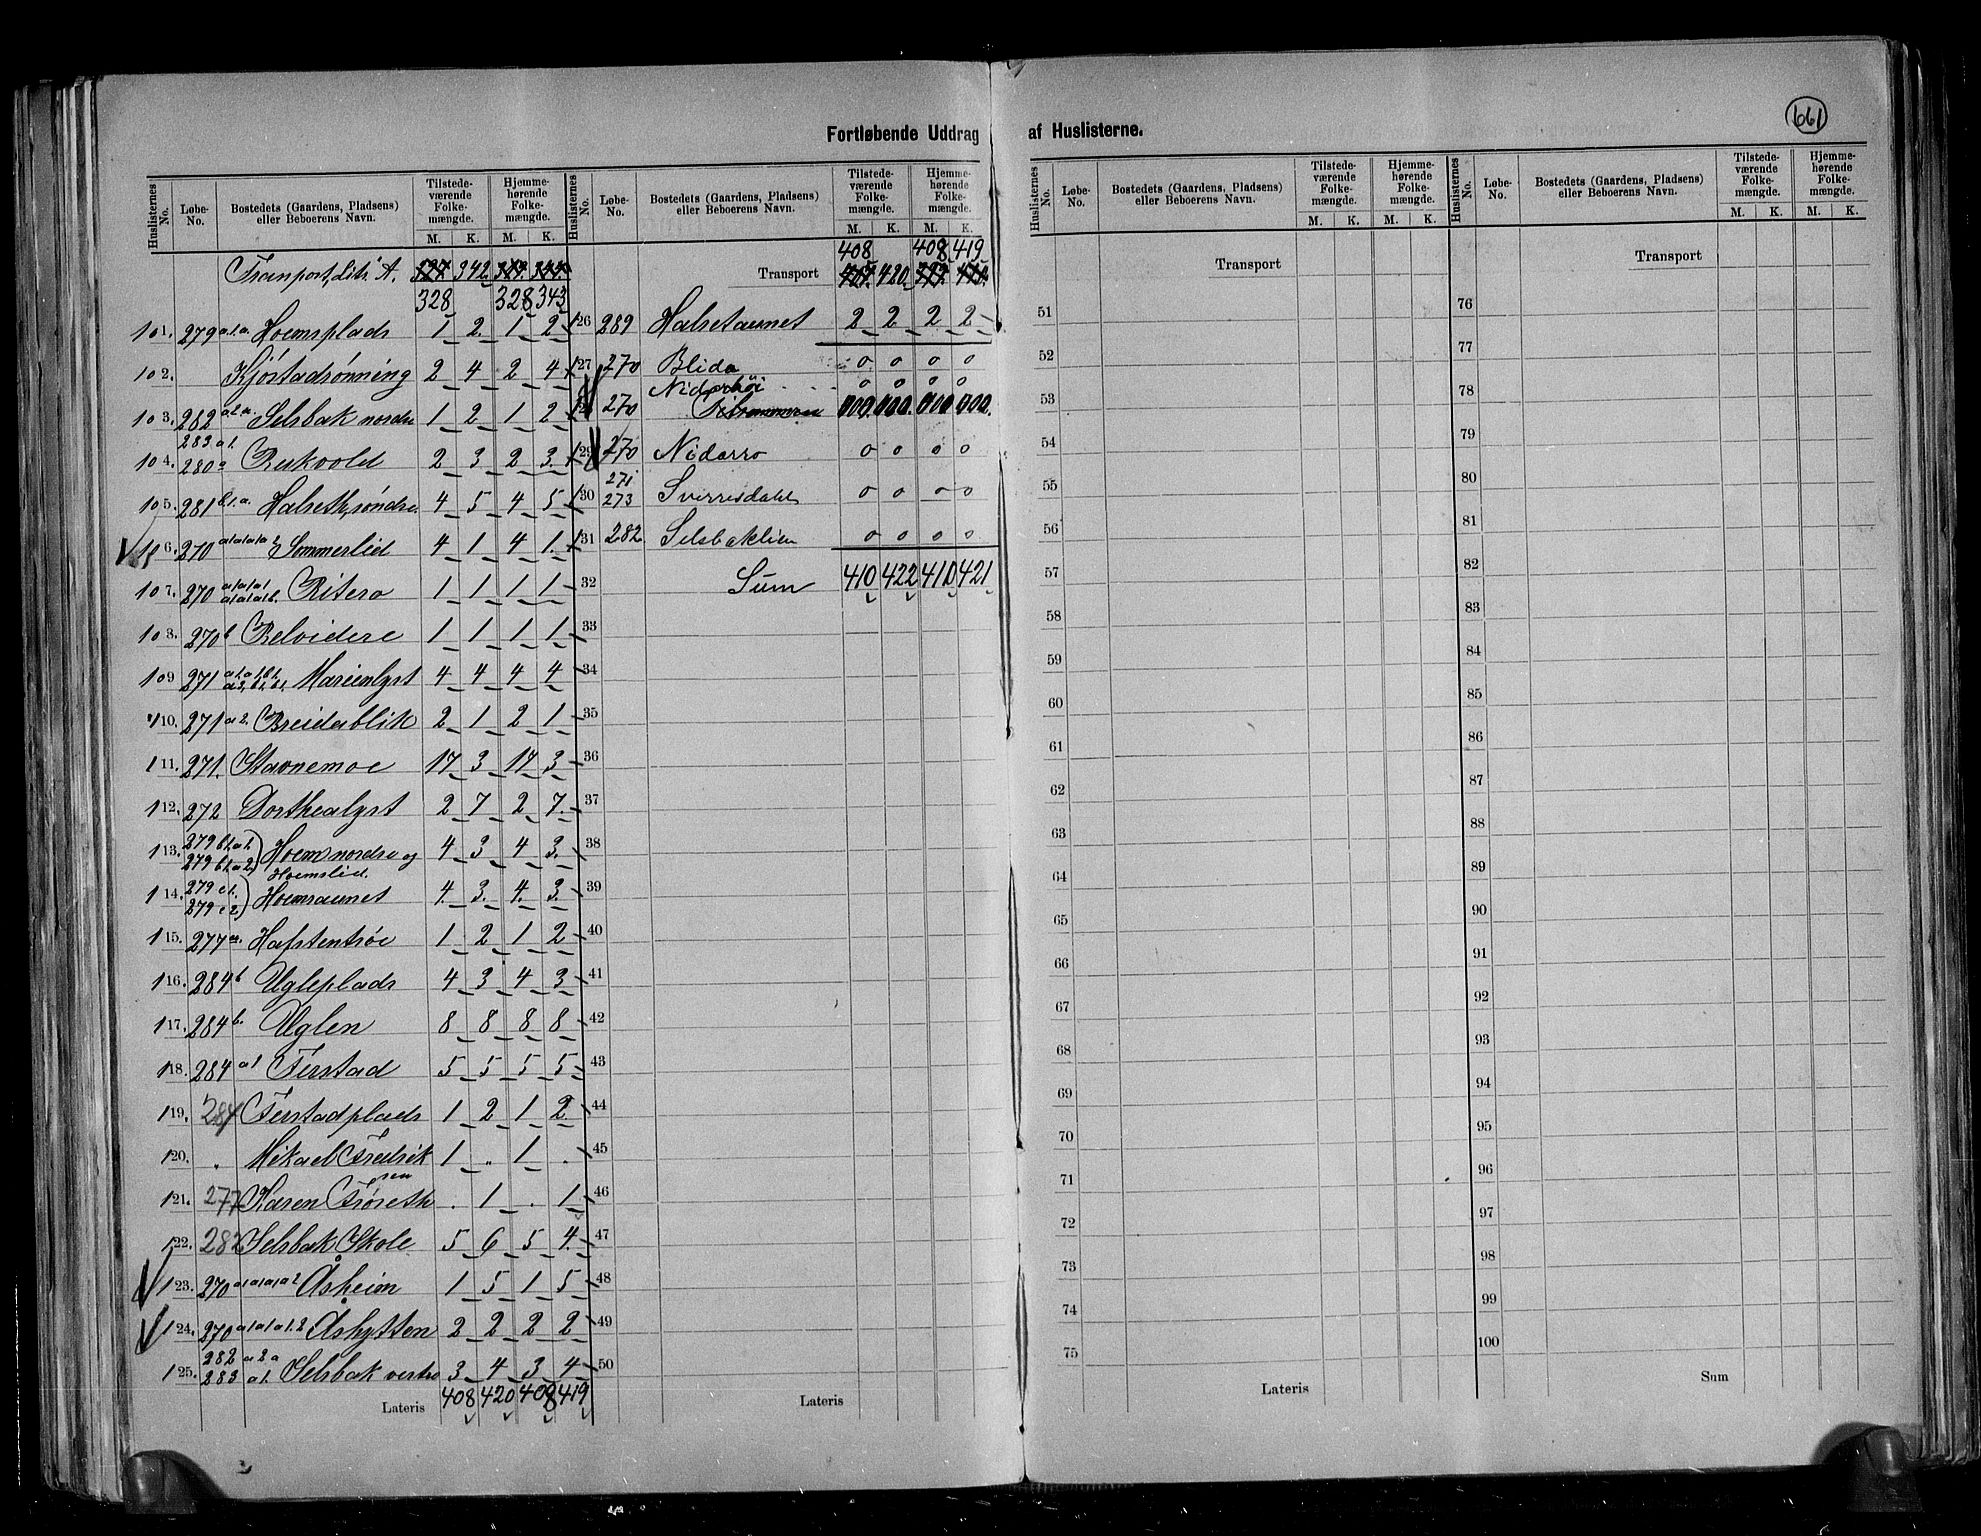 661
Fortløbende Uddrag af Huslisterne.
Huslisternes No. Løbe-No. Bostedets (Gaardens, Pladsens) eller Beboerens Navn. Tilstedeværende Folkemængde. M. K. Hjemmehørende Folkemængde. M. K.
Transport, litr. A. 342
328 328 343
101. 279 a.1.a. Hoemsplads 1 2 1 2
102. Kjøstadrønning 2 4 2 4
103. 282 a.2.a. Selsbak nordre 1 2 1 2
283 a1.
104. 280 a Ruskvold 2 3 2 3
105. 281 b.1.a. Halseth, søndre 4 5 4 5
106. 270 a1a1a1a2 Sommerlid 4 1 4 1
107. 270 a1a1a1 a1a1a1b. Ritero 1 1 1 1
108. 270 b Belvidere 1 1 1 1
109 271 Marienlyst 4 4 4 4
110. 271 a2. Breidablik 2 1 2 1
111. 271. Stavnemoe 17 3 17 3
112. 272 Dorthealyst 2 7 2 7
113. 279 b1.a1. 279 b1.a2. Hoem nordre og Hoemslid. 4 3 4 3
114. 279 c1. 279 c2 Hoemsaunet 4 3 4 3
115. 277 a. Hafstentrøe 1 2 1 2
116. 284 b Ugleplads 4 3 4 3
117. 284 b. Uglen 8 8 8 8
118. 284 a1 Ferstad 5 5 5 5
119. 284 Ferstadplads 1 2 1 2
120. " Mikael Fredriksen 1 " 1 .
121. 277 Karen Trøseth . 1 . 1
122. 282 Selsbak Skole 5 6 5 4
123. 270 a1a1a1a2 Åsheim 1 5 1 5
124. 270 a1a1a1.2 Åshytten 2 2 2 2
125. 282 a2a 283 a1. Selsbak vestre 3 4 3 4
Lateris 408 420 408 419
Huslisternes No. Løbe-No. Bostedets (Gaardens, Pladsens) eller Beboerens Navn. Tilstedeværende Folkemængde. M. K. Hjemmehørende Folkemængde. M. K.
408 408 419
Transport 420
126 289 Halsetaunet 2 2 2 2
127 270 Blida 0 0 0 0
Nidarhøi 0 0 0 0
128 270
129 270 Nidarro 0 0 0 0
271
130 273 Sverresdahl 0 0 0 0
131 282. Selsbaklien 0 0 0 0
32 Sum 410 422 410 421
33
34
35
36
37
38
39
40
41
42
43
44
45
46
47
48
49
50
Lateris
Huslisternes No. Løbe-No. Bostedets (Gaardens, Pladsens) eller Beboerens Navn. Tilstedeværende Folkemængde. M. K. Hjemmehørende Folkemængde. M. K.
Transport
51
52
53
54
55
56
57
58
59
60
61
62
63
64
65
66
67
68
69
70
71
72
73
74
75
Lateris
Huslisternes No. Løbe-No. Bostedets (Gaardens, Pladsens) eller Beboerens Navn. Tilstedeværende Folkemængde. M. K. Hjemmehørende Folkemængde. M. K.
Transport
76
77
78
79
80
81
82
83
84
85
86
87
88
89
90
91
92
93
94
95
96
97
98
99
100
Sum